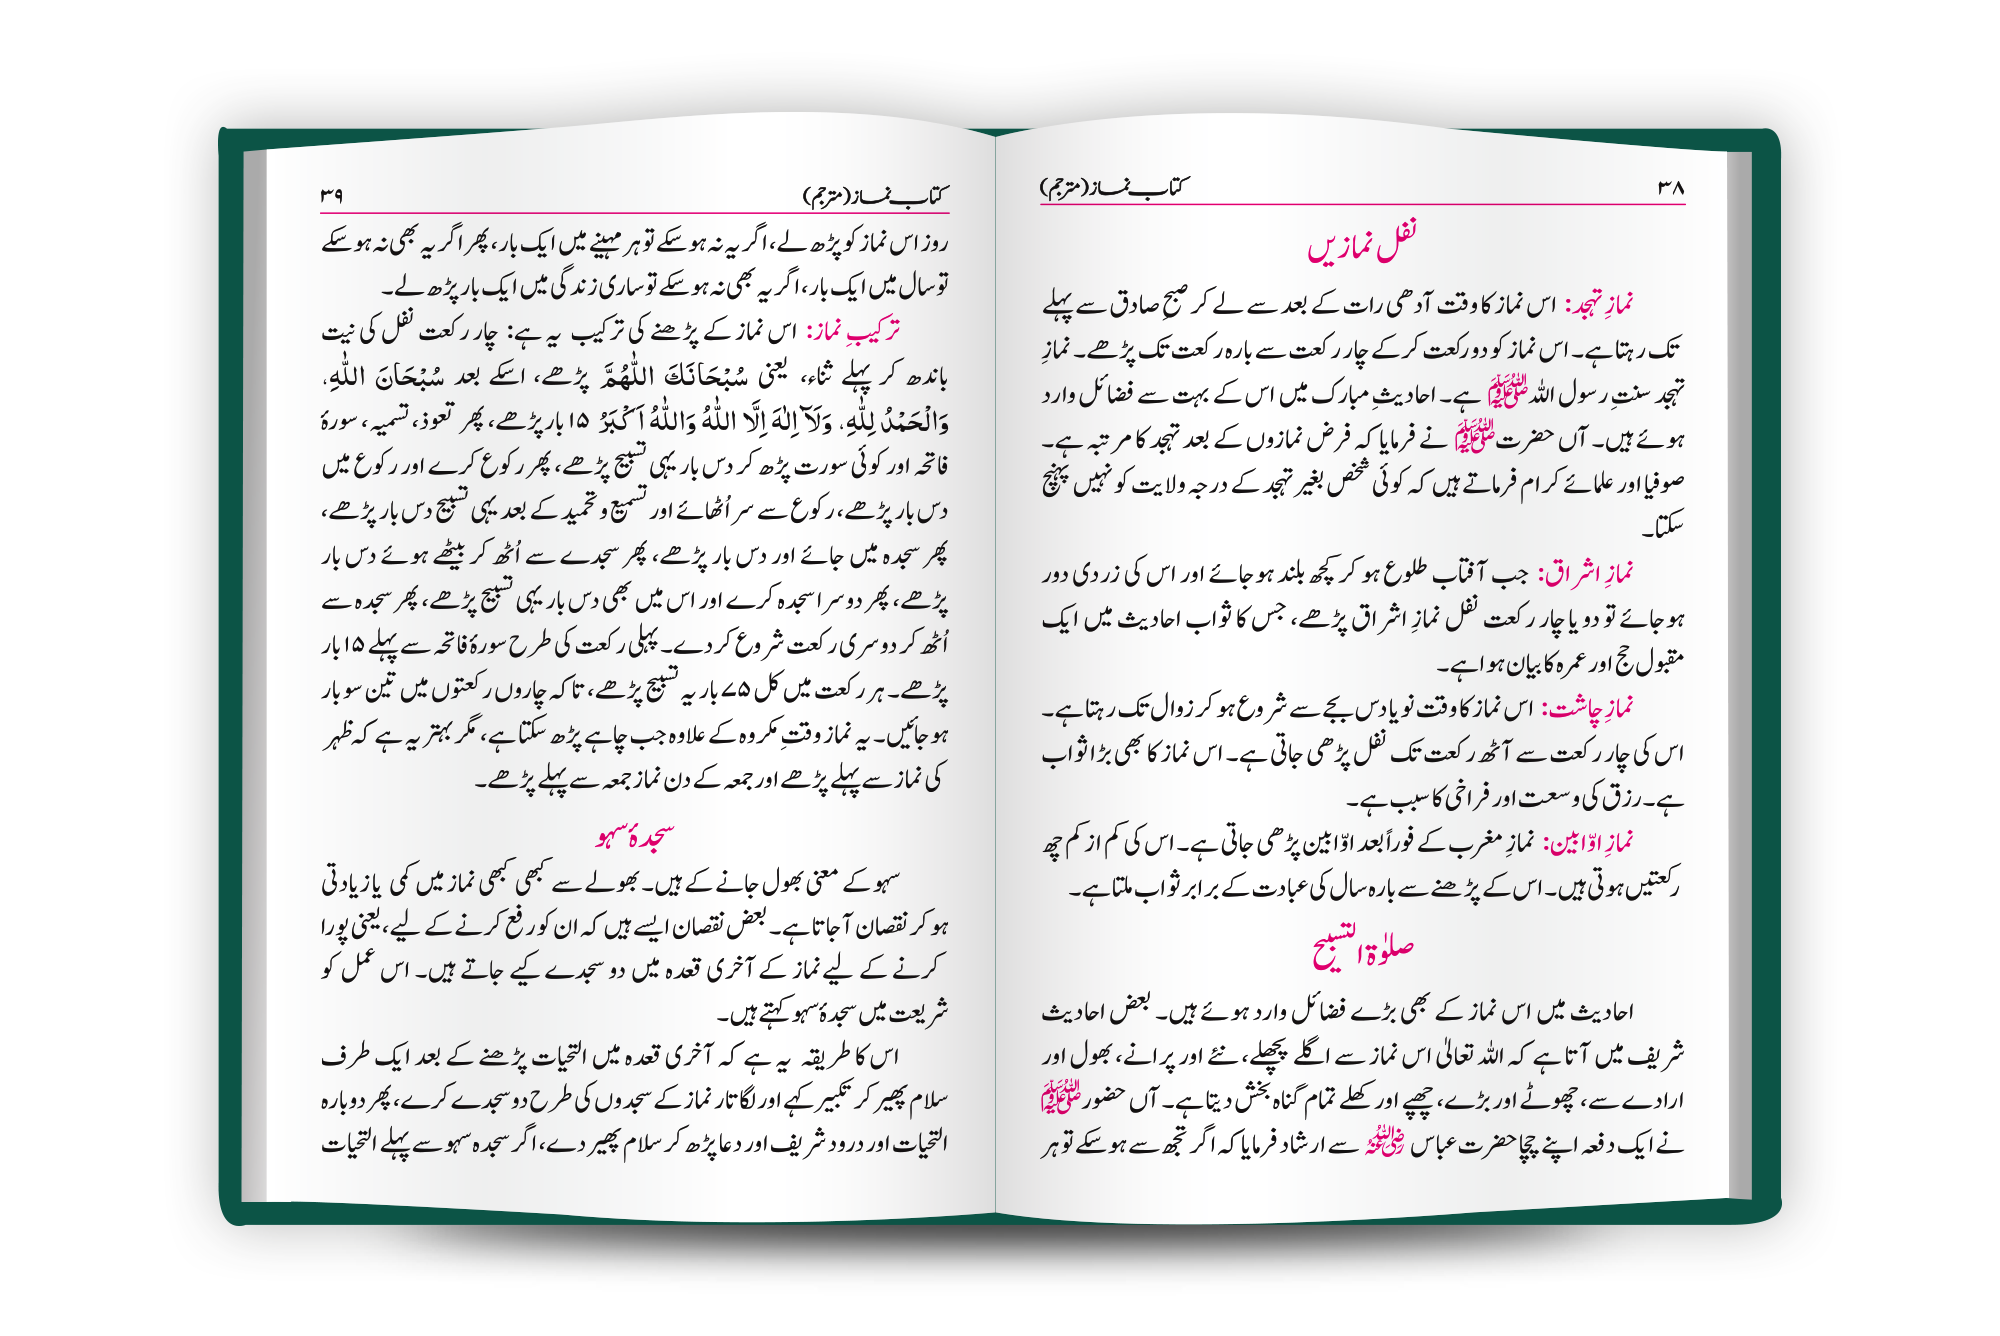 ۳۸ کتاب نماز (مترجم)
نفل نمازیں
نمازِ تہجد: اس نماز کا وقت آدھی رات کے بعد سے لے کر صبحِ صادق سے پہلے
تک رہتا ہے۔ اس نماز کو دو رکعت کرکے چار رکعت سے بارہ رکعت تک پڑھے۔ نمازِ
تہجد سنتِ رسول اللہ ﷺ ہے۔ احادیثِ مبارک میں اس کے بہت سے فضائل وارد
ہوئے ہیں۔ آں حضرت ﷺ نے فرمایا کہ فرض نمازوں کے بعد تہجد کا مرتبہ ہے۔
صوفیا اور علمائے کرام فرماتے ہیں کہ کوئی شخص بغیر تہجد کے درجہ ولایت کو نہیں پہنچ
سکتا۔
نمازِ اشراق: جب آفتاب طلوع ہو کر کچھ بلند ہو جائے اور اس کی زردی دور
ہو جائے تو دو یا چار رکعت نفل نمازِ اشراق پڑھے، جس کا ثواب احادیث میں ایک
مقبول حج اور عمرہ کا بیان ہوا ہے۔
نمازِ چاشت: اس نماز کا وقت نو یا دس بجے سے شروع ہو کر زوال تک رہتا ہے۔
اس کی چار رکعت سے آٹھ رکعت تک نفل پڑھی جاتی ہے۔ اس نماز کا بھی بڑا ثواب
ہے۔ رزق کی وسعت اور فراخی کا سبب ہے۔
نمازِ اوّابین: نمازِ مغرب کے فوراً بعد اوّابین پڑھی جاتی ہے۔ اس کی کم از کم چھ
رکعتیں ہوتی ہیں۔ اس کے پڑھنے سے بارہ سال کی عبادت کے برابر ثواب ملتا ہے۔
صلوٰۃ التسبیح
احادیث میں اس نماز کے بھی بڑے فضائل وارد ہوئے ہیں۔ بعض احادیث
شریف میں آتا ہے کہ اللہ تعالیٰ اس نماز سے اگلے پچھلے، نئے اور پرانے، بھول اور
ارادے سے، چھوٹے اور بڑے، چھپے اور کھلے تمام گناہ بخش دیتا ہے۔ آں حضور ﷺ
نے ایک دفعہ اپنے چچا حضرت عباس رضی اللہ عنہ سے ارشاد فرمایا کہ اگر تجھ سے ہو سکے تو ہر
کتاب نماز (مترجم) ۳۹
روز اس نماز کو پڑھ لے، اگر یہ نہ ہو سکے تو ہر مہینے میں ایک بار، پھر اگر یہ بھی نہ ہو سکے
تو سال میں ایک بار، اگر یہ بھی نہ ہو سکے تو ساری زندگی میں ایک بار پڑھ لے۔
ترکیبِ نماز: اس نماز کے پڑھنے کی ترکیب یہ ہے: چار رکعت نفل کی نیت
باندھ کر پہلے ثناء، یعنی سُبْحَانَكَ اللّٰهُمَّ پڑھے، اسکے بعد سُبْحَانَ اللّٰهِ،
وَالْحَمْدُ لِلّٰهِ، وَلَآ اِلٰهَ اِلَّا اللّٰهُ وَاللّٰهُ اَكْبَرُ ۱۵ بار پڑھے، پھر تعوذ، تسمیہ، سورۂ
فاتحہ اور کوئی سورت پڑھ کر دس بار یہی تسبیح پڑھے، پھر رکوع کرے اور رکوع میں
دس بار پڑھے، رکوع سے سر اُٹھائے اور تسمیع و تحمید کے بعد یہی تسبیح دس بار پڑھے،
پھر سجدہ میں جائے اور دس بار پڑھے، پھر سجدے سے اُٹھ کر بیٹھے ہوئے دس بار
پڑھے، پھر دوسرا سجدہ کرے اور اس میں بھی دس بار یہی تسبیح پڑھے، پھر سجدہ سے
اُٹھ کر دوسری رکعت شروع کر دے۔ پہلی رکعت کی طرح سورۂ فاتحہ سے پہلے ۱۵ بار
پڑھے۔ ہر رکعت میں کل ۷۵ بار یہ تسبیح پڑھے، تاکہ چاروں رکعتوں میں تین سو بار
ہو جائیں۔ یہ نماز وقتِ مکروہ کے علاوہ جب چاہے پڑھ سکتا ہے، مگر بہتر یہ ہے کہ ظہر
کی نماز سے پہلے پڑھے اور جمعہ کے دن نماز جمعہ سے پہلے پڑھے۔
سجدۂ سہو
سہو کے معنی بھول جانے کے ہیں۔ بھولے سے کبھی کبھی نماز میں کمی یا زیادتی
ہو کر نقصان آ جاتا ہے۔ بعض نقصان ایسے ہیں کہ ان کو رفع کرنے کے لیے، یعنی پورا
کرنے کے لیے نماز کے آخری قعدہ میں دو سجدے کیے جاتے ہیں۔ اس عمل کو
شریعت میں سجدۂ سہو کہتے ہیں۔
اس کا طریقہ یہ ہے کہ آخری قعدہ میں التحیات پڑھنے کے بعد ایک طرف
سلام پھیر کر تکبیر کہے اور لگاتار نماز کے سجدوں کی طرح دو سجدے کرے، پھر دوبارہ
التحیات اور درود شریف اور دعا پڑھ کر سلام پھیر دے، اگر سجدہ سہو سے پہلے التحیات